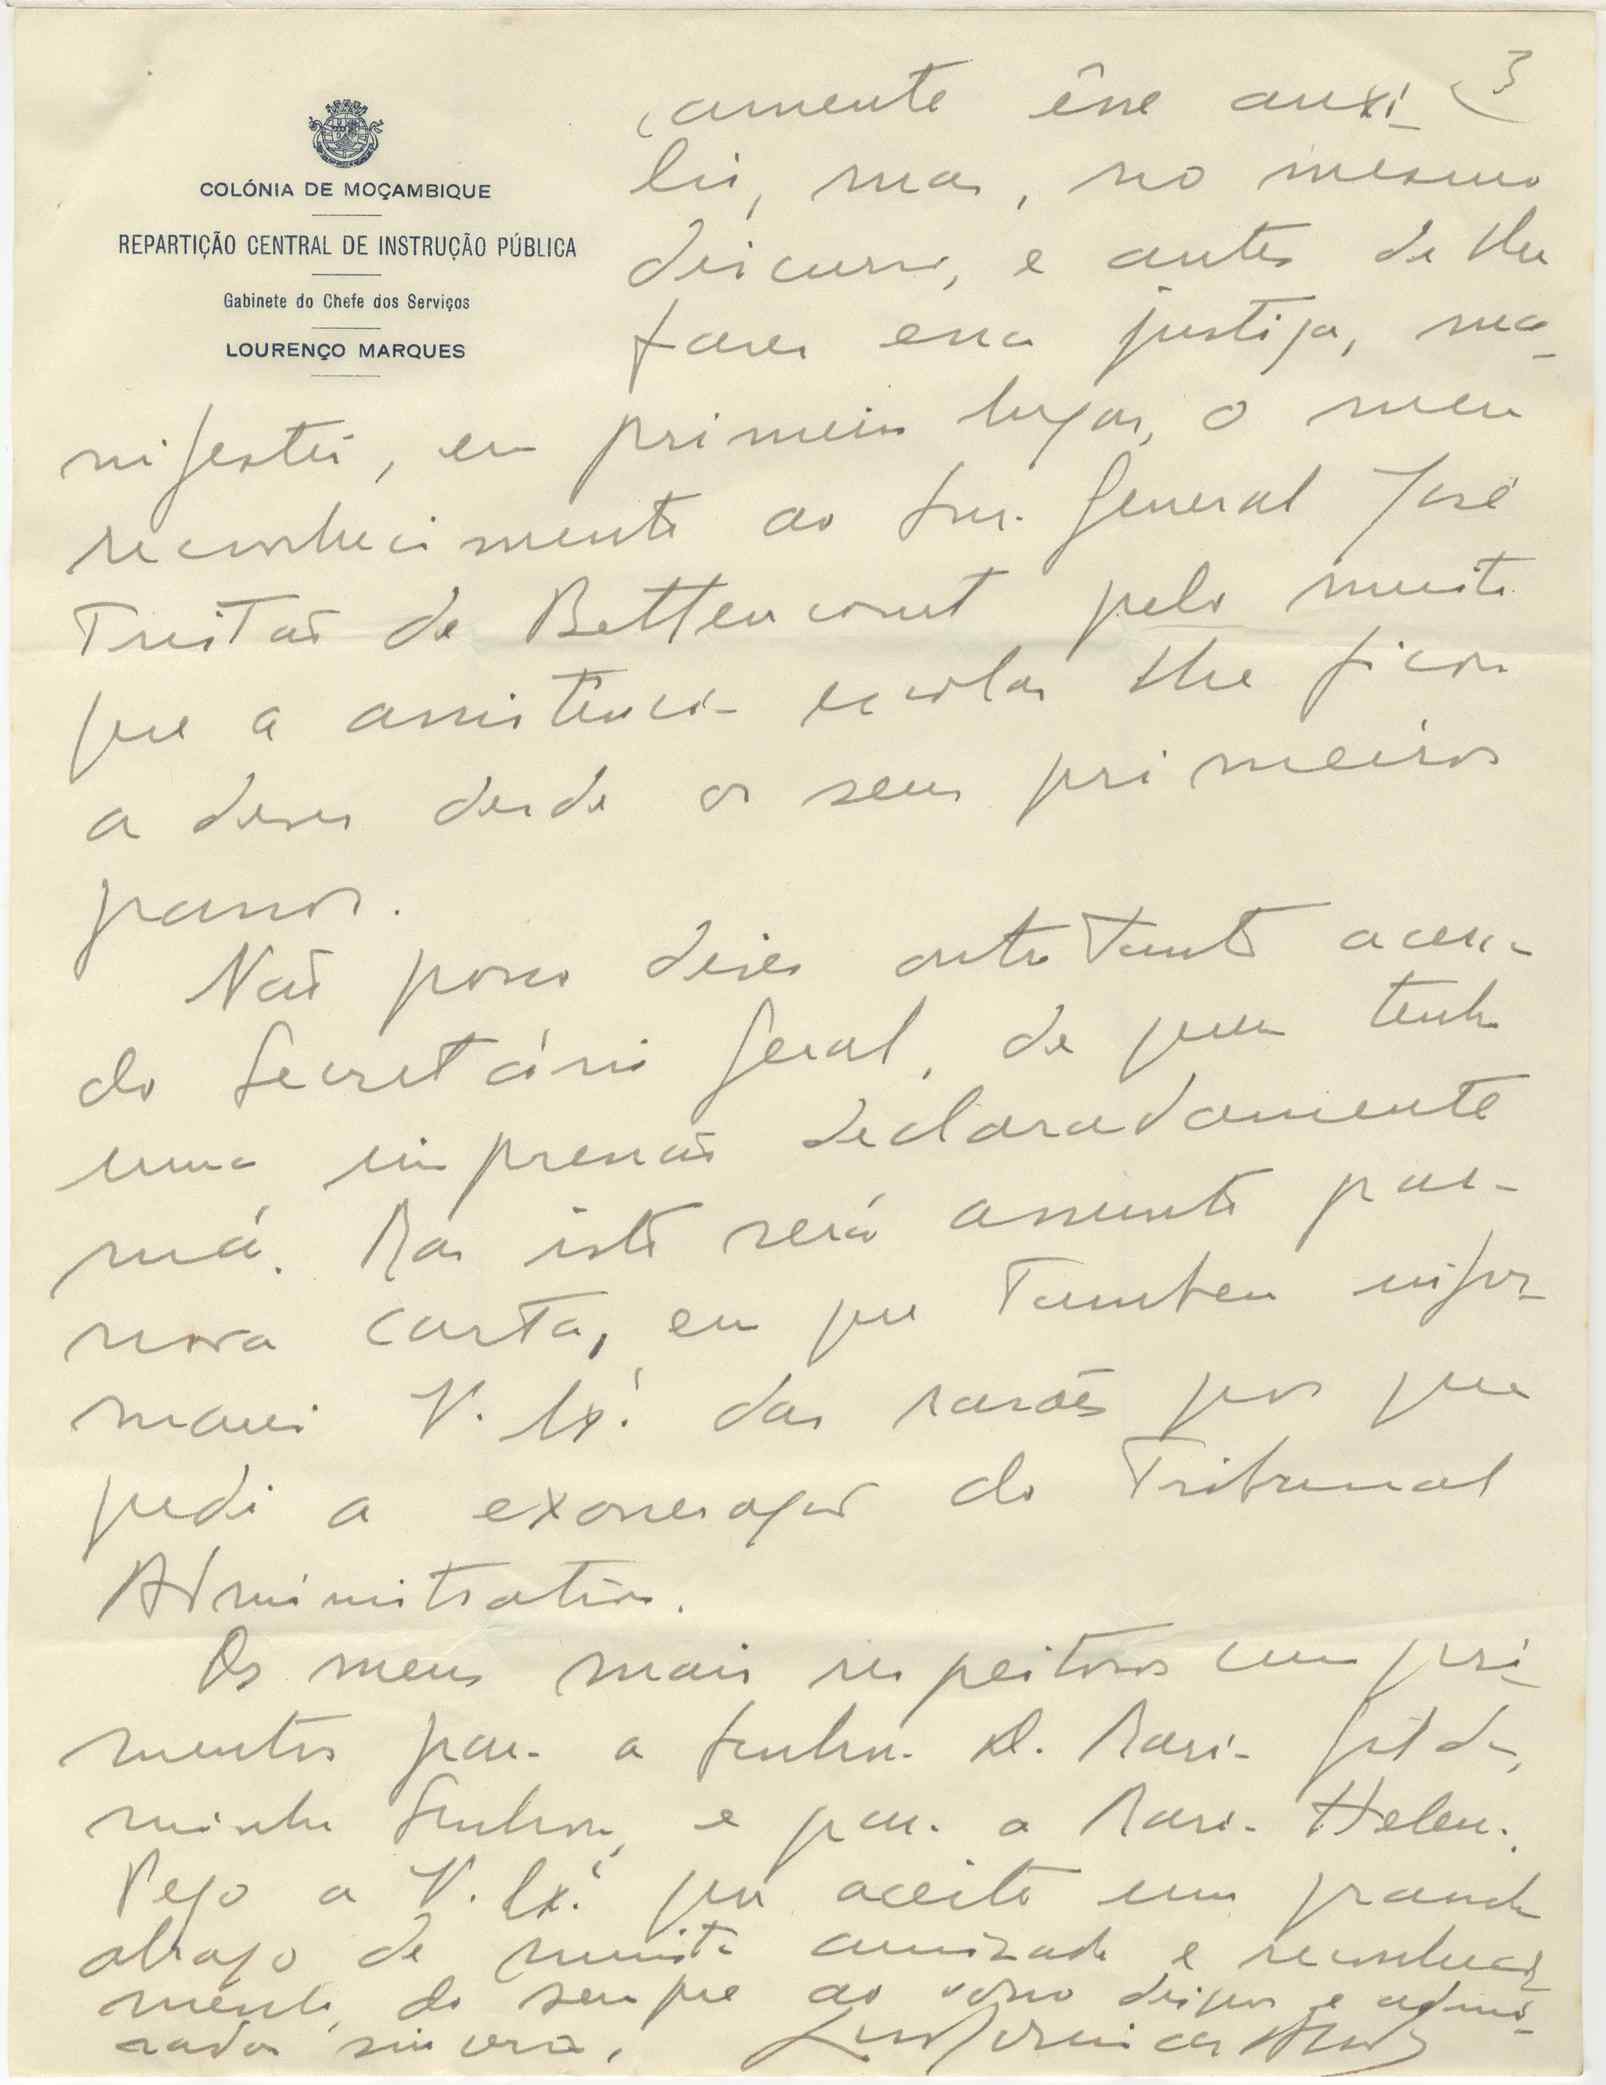 3
COLÓNIA DE MOÇAMBIQUE
REPARTIÇÃO CENTRAL DE INSTRUÇÃO PÚBLICA
Gabinete do Chefe dos Serviços
LOURENÇO MARQUES
camente êsse auxi-
lio, mas, no mesmo
discurso, e antes de lhe
fazer essa justiça, ma-
nifestei, em primeiro lugar, o meu
reconhecimento ao Snr. General José
Tristão de Bettencourt pelo muito
que a assistência escolar lhe ficou
a dever desde os seus primeiros
passos.
Não posso dizer outro tanto acerca
do Secretário Geral, de quem tenho
uma impressão declaradamente
má. Mas isto será assunto para
nova carta, em que tambem infor-
marei V. Ex.ª das razões por que
pedi a exoneração do Tribunal
Administrativo.
Os meus mais respeitosos cumpri-
mentos para a Senhora D. Maria Gilda,
minha Senhora, e para a Maria Helena.
Peço a V. Ex.ª que aceite um grande
abraço de muita amizade e reconheci-
mento, do sempre ao vosso dispor e admi-
rador sincero,